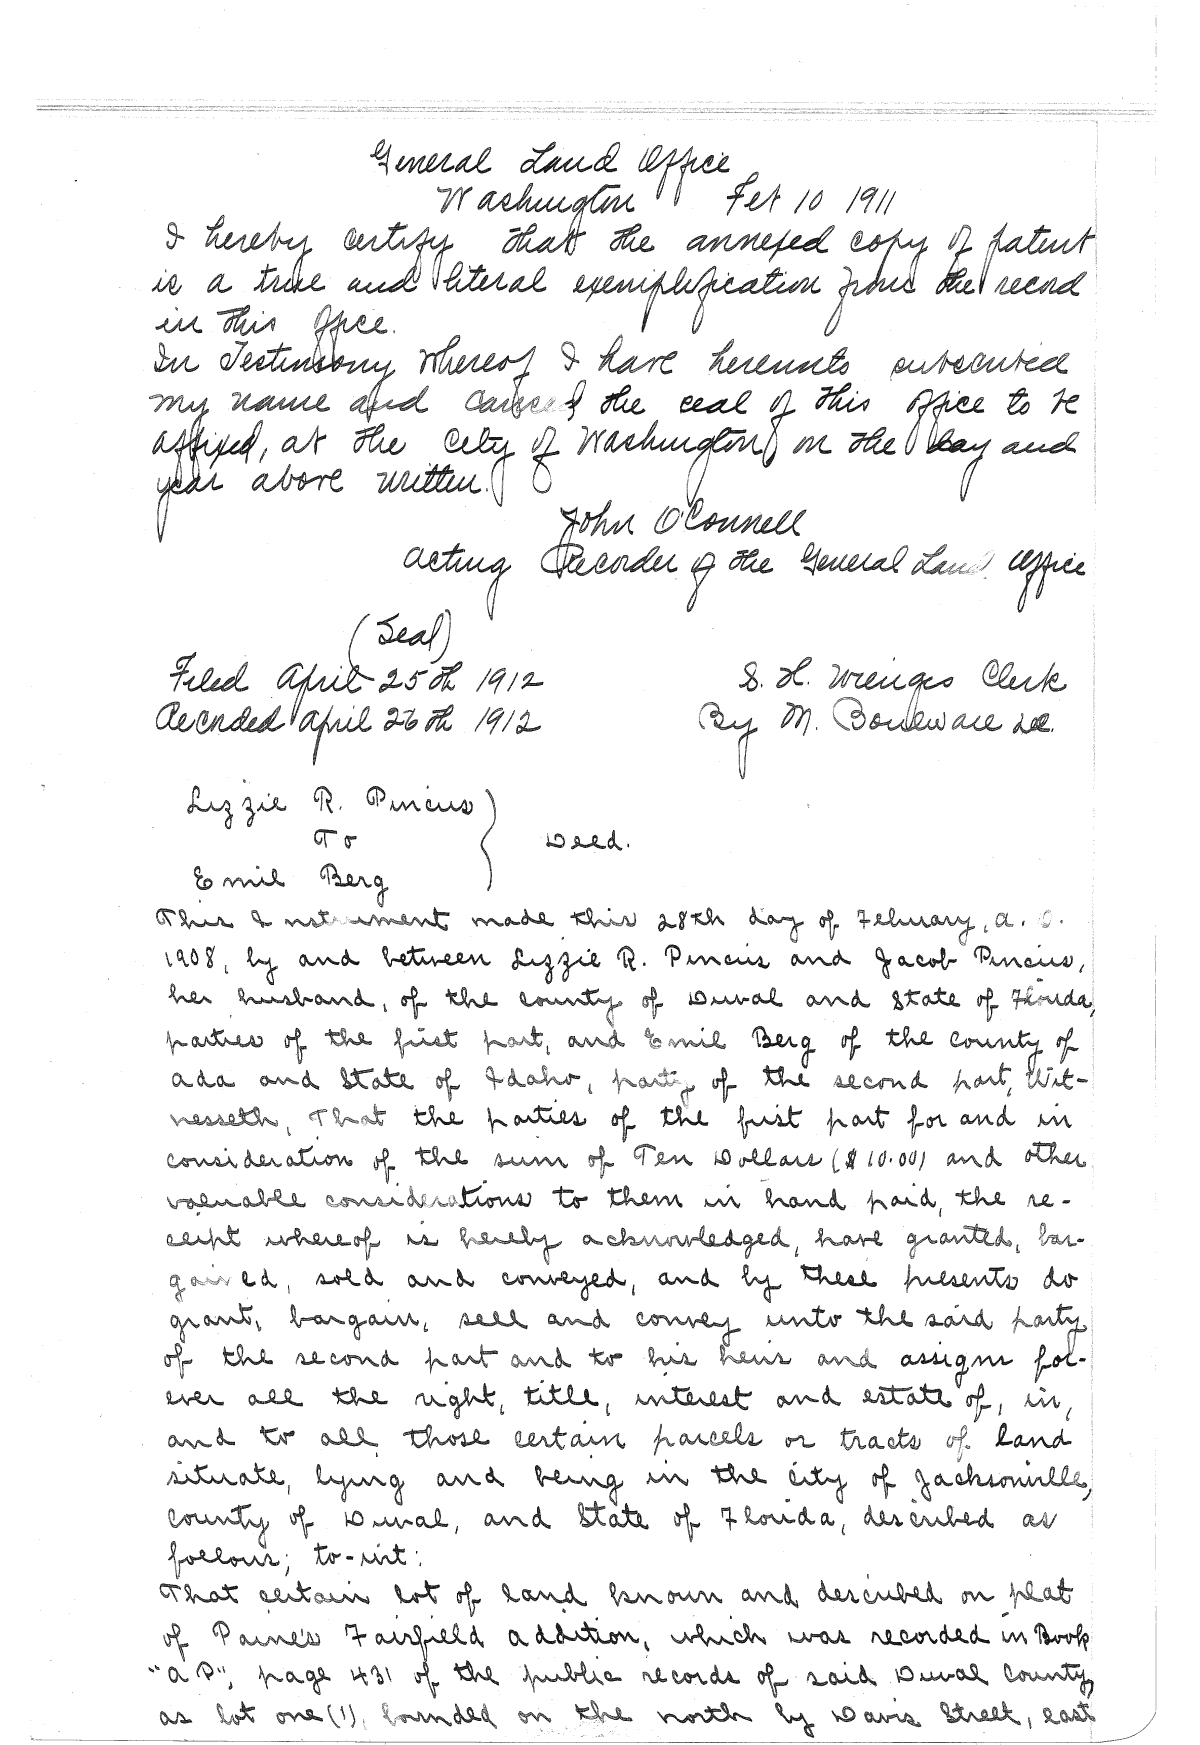 General Land Office
Washington Feb 10 1911
I hereby certify that the annexed copy of patent
is a true and literal exemplification from the record
in this office.
In Testimony Whereof I have hereunto subscribed
my name and caused the seal of this office to be
affixed, at the city of Washington, on the day and
year above written.
John O'Connell
Acting Recorder of the General Land Office
(Seal)
Filed April 25th 1912 S. H. Wienges Clerk
Recorded April 26th 1912 By M. Bouleware
Lizzie R. Pincus
To Deed.
Emil Berg
This Instrument made this 28th day of February, A. D.
1908, by and between Lizzie R. Pincus and Jacob Pincus,
her husband, of the county of Duval and State of Florida,
parties of the first part, and Emil Berg of the county of
Ada and State of Idaho, party of the second part, Wit-
nesseth, That the parties of the first part for and in
consideration of the sum of Ten Dollars ($10.00) and other
valuable considerations to them in hand paid, the re-
ceipt whereof is hereby acknowledged, have granted, bar-
gained, sold and conveyed, and by these presents do
grant, bargain, sell and convey unto the said party
of the second part and to his heirs and assigns for-
ever all the right, title, interest and estate of, in,
and to all those certain parcels or tracts of land
situate, lying and being in the city of Jacksonville,
county of Duval, and State of Florida, described as
follows; to-wit:
That certain lot of land known and described on plat
of Paine's Fairfield addition, which was recorded in Book
"A P", page 431 of the public records of said Duval County,
as lot one (1), bounded on the north by Davis Street, east